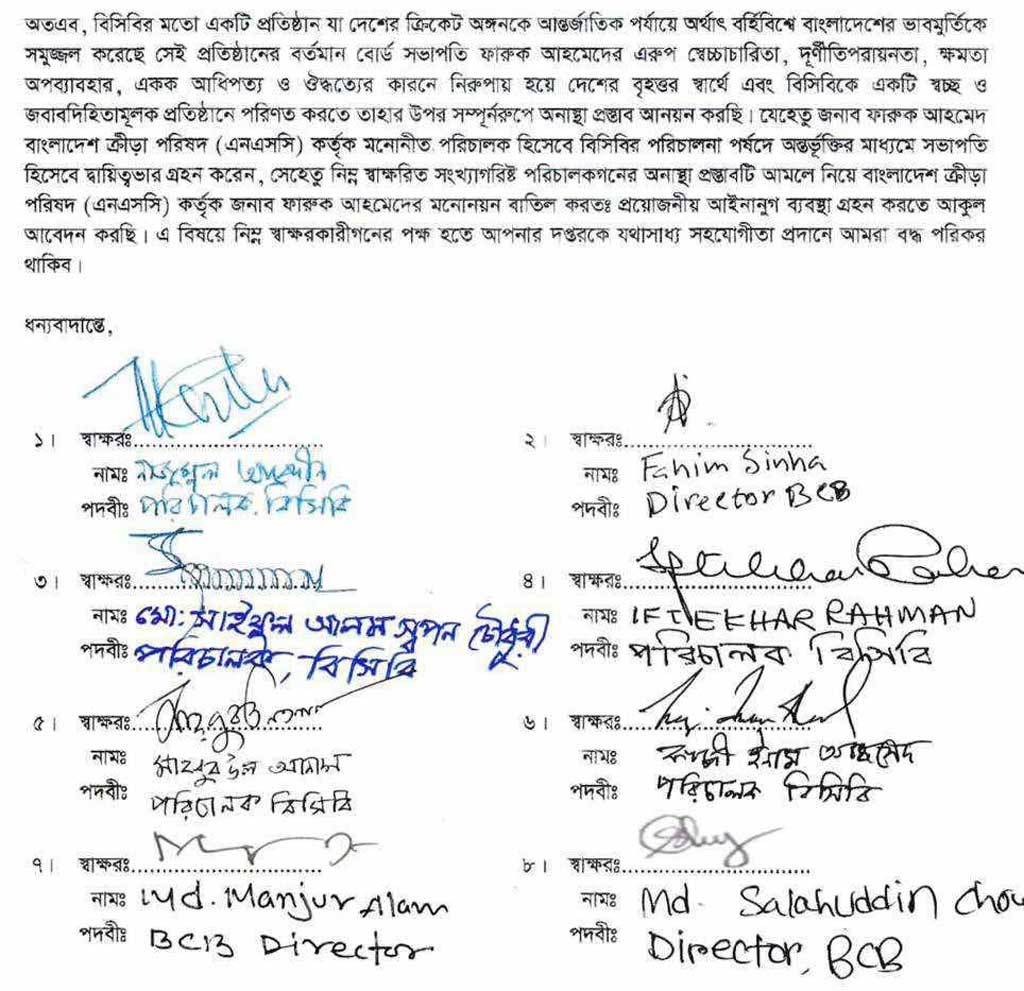 অতএব, বিসিবির মতো একটি প্রতিষ্ঠান যা দেশের ক্রিকেট অঙ্গনকে আন্তর্জাতিক পর্যায়ে অর্থাৎ বর্হিবিশ্বে বাংলাদেশের ভাবমুর্তিকে
সমুজ্জল করেছে সেই প্রতিষ্ঠানের বর্তমান বোর্ড সভাপতি ফারুক আহমেদের এরুপ স্বেচ্চাচারিতা, দূর্ণীতিপরায়নতা, ক্ষমতা
অপব্যাবহার, একক আধিপত্য ও ঔদ্ধত্যের কারনে নিরুপায় হয়ে দেশের বৃহত্তর স্বার্থে এবং বিসিবিকে একটি স্বচ্ছ ও
জবাবদিহিতামূলক প্রতিষ্ঠানে পরিণত করতে তাহার উপর সম্পূর্নরুপে অনাস্থা প্রস্তাব আনয়ন করছি। যেহেতু জনাব ফারুক আহমেদ
বাংলাদেশ ক্রীড়া পরিষদ (এনএসসি) কর্তৃক মনোনীত পরিচালক হিসেবে বিসিবির পরিচালনা পর্ষদে অন্তর্ভূক্তির মাধ্যমে সভাপতি
হিসেবে দ্বায়িত্বভার গ্রহন করেন, সেহেতু নিম্ন স্বাক্ষরিত সংখ্যাগরিষ্ট পরিচালকগনের অনাস্থা প্রস্তাবটি আমলে নিয়ে বাংলাদেশ ক্রীড়া
পরিষদ (এনএসসি) কর্তৃক জনাব ফারুক আহমেদের মনোনয়ন বাতিল করতঃ প্রয়োজনীয় আইনানুগ ব্যবস্থা গ্রহন করতে আকুল
আবেদন করছি। এ বিষয়ে নিম্ন স্বাক্ষরকারীগনের পক্ষ হতে আপনার দপ্তরকে যথাসাধ্য সহযোগীতা প্রদানে আমরা বদ্ধ পরিকর
থাকিব।
ধন্যবাদান্তে,
১। স্বাক্ষরঃ
নামঃ
পদবীঃ পরিচালক, বিসিবি
২। স্বাক্ষরঃ
নামঃ Fahim Sinha
পদবীঃ Director BCB
৩। স্বাক্ষরঃ
নামঃ মো: সাইফুল আলম স্বপন চৌধুরী
পদবীঃ পরিচালক, বিসিবি
৪। স্বাক্ষরঃ
নামঃ IFTEKHAR RAHMAN
পদবীঃ পরিচালক বিসিবি
৫। স্বাক্ষরঃ
নামঃ
পদবীঃ পরিচালক বিসিবি
৬। স্বাক্ষরঃ
নামঃ কাজী ইনাম আহমেদ
পদবীঃ পরিচালক বিসিবি
৭। স্বাক্ষরঃ
নামঃ Md. Manjur Alam
পদবীঃ BCB Director
৮। স্বাক্ষরঃ
নামঃ Md. Salahuddin Chou
পদবীঃ Director, BCB